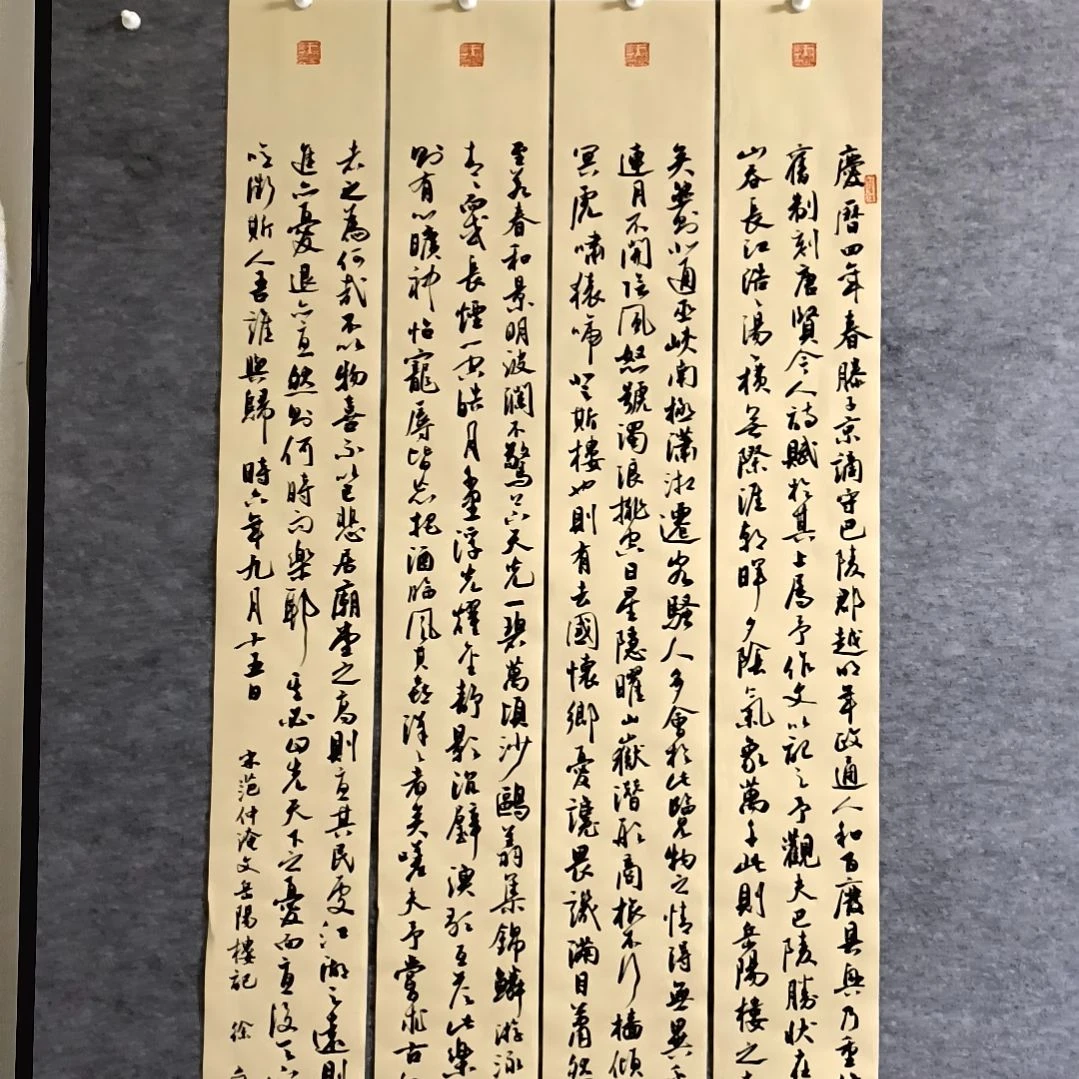 慶曆四年春滕子京謫守巴陵郡越明年政通人和百廢具興乃重
舊制刻唐賢今人詩賦於其上屬予作文以記之予觀夫巴陵勝狀在
山吞長江浩〻湯〻橫無際涯朝暉夕陰氣象萬千此則岳陽樓之
矣然則北通巫峽南極瀟湘遷客騷人多會於此覽物之情得無異乎
連月不開陰風怒號濁浪排空日星隱曜山嶽潛形商旅不行檣傾
冥虎嘯猿啼登斯樓也則有去國懷鄉憂讒畏譏滿目蕭然
至若春和景明波瀾不驚上下天光一碧萬頃沙鷗翔集錦鱗游泳
青〻而或長煙一空皓月千里浮光耀金靜影沉璧漁歌互答此樂
則有心曠神怡寵辱皆忘把酒臨風其喜洋〻者矣嗟夫予嘗求古
者之為何哉不以物喜不以己悲居廟堂之高則憂其民處江湖之遠則
進亦憂退亦憂然則何時而樂耶其必曰先天下之憂而憂後天下
噫微斯人吾誰與歸 時六年九月十五日 宋范仲淹文岳陽樓記 徐